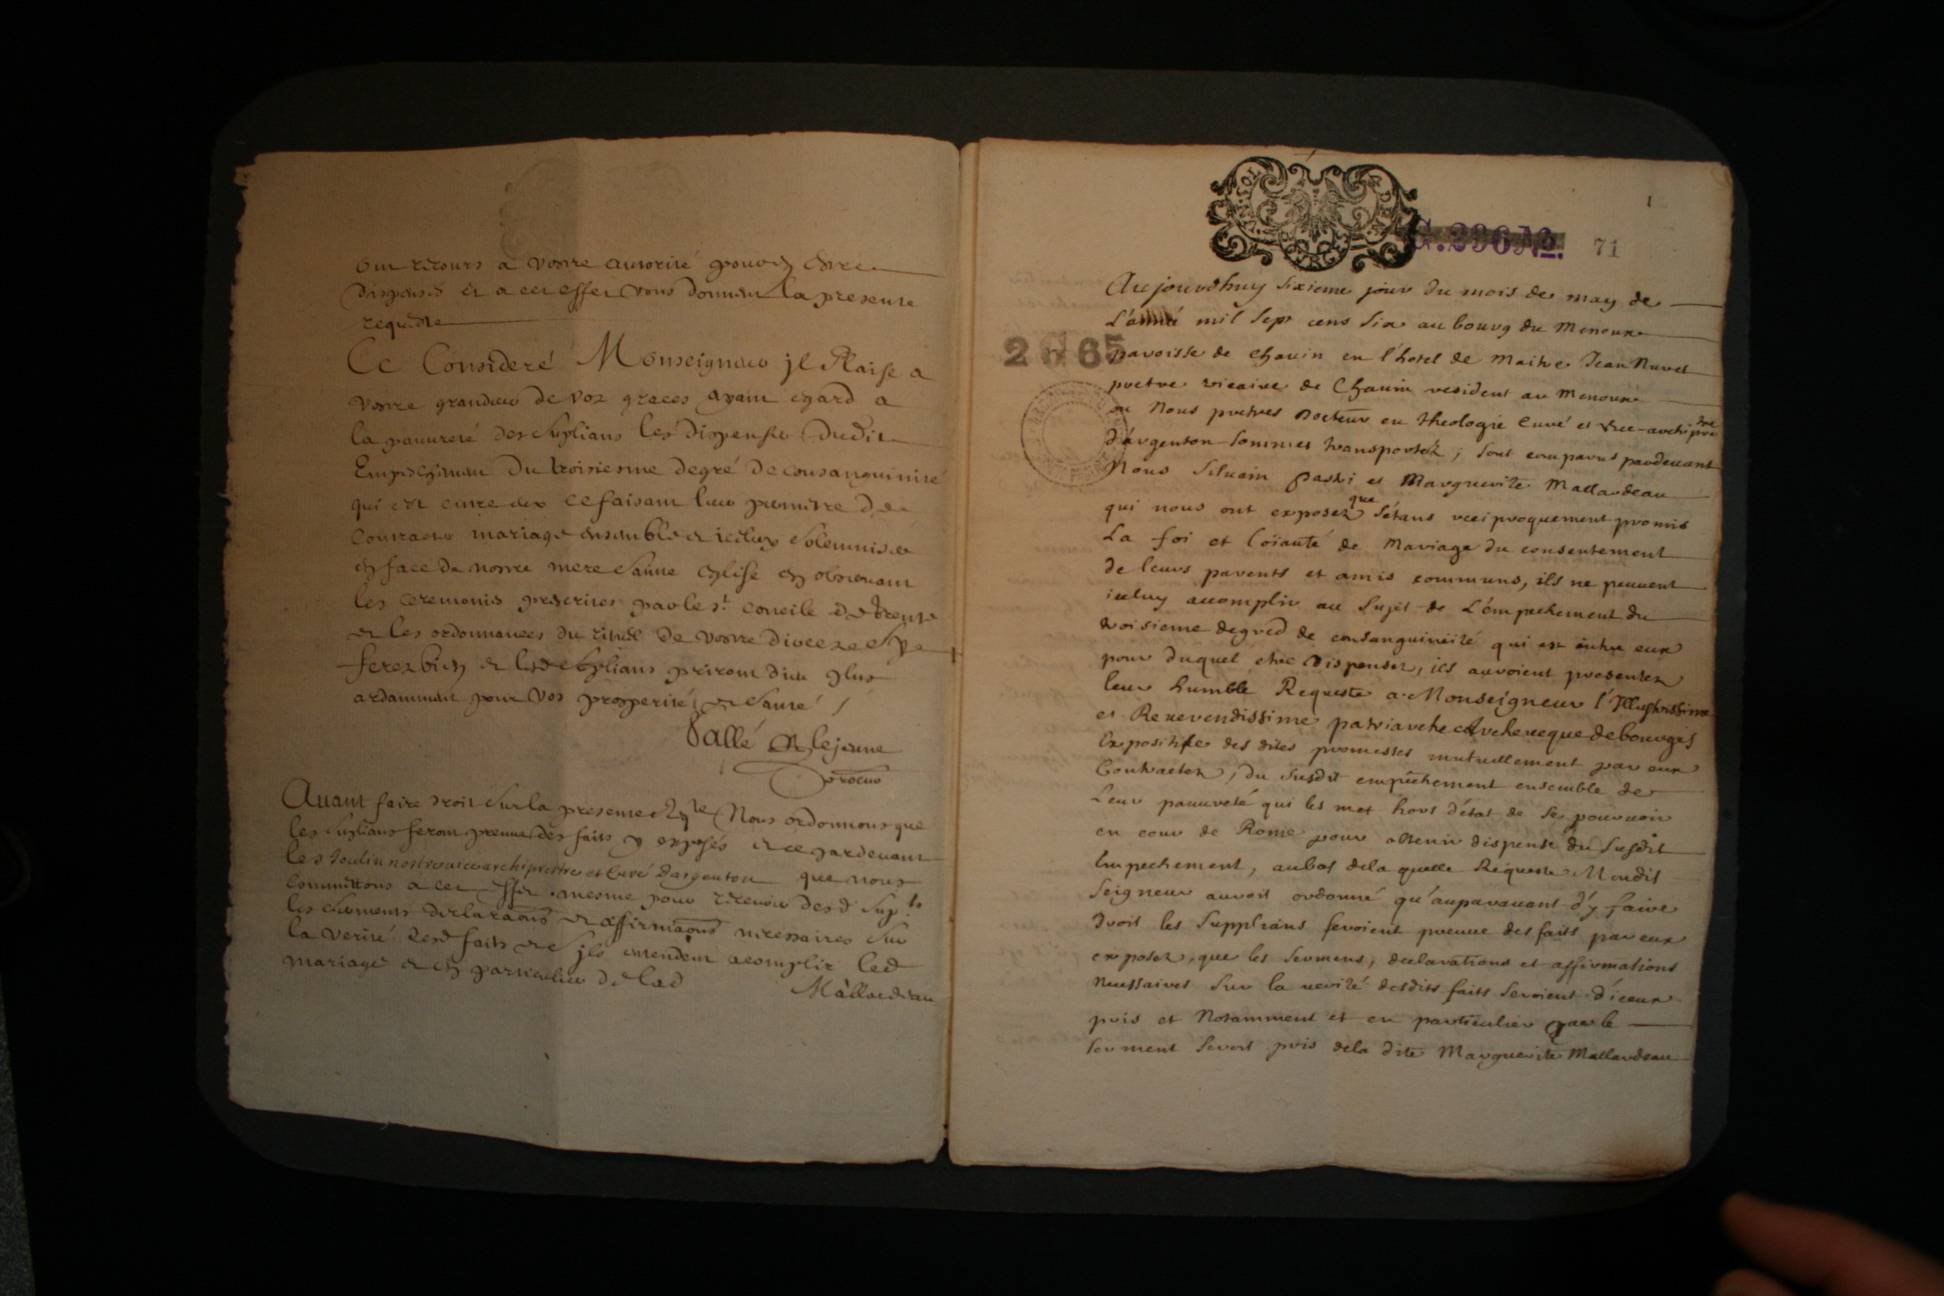 ont recours a vostre autorité pouvoir estre
dispensés et a cet effet vous donnent la presente
requeste
Ce Consideré Monseigneur jl Plaise a
vostre grandeur de vos graces ayant egard a
la pauureté des suplians les dispenser dudit
Empeschement du troisiesme degré de consanguinité
qui est entre eux ce faisant leur permettre de
contracter mariage ensemble et icelluy solemniser
en face de nostre mere sainte eglise en observant
les ceremonies prescrites par le st concile de trente
et les ordonnances du rituel de vostre dioceze et
ferez bien et lesd suplians priront dieu plus
ardamment pour vos prosperité et santé
lejeune
procur
Auant faire droit sur la presente Rqte Nous ordonnons que
les suplians feront preuue des faits y exposés et ce pardeuant
nostre vice archiprestre et Curé dargenton que nous
commettons a cet effet mesme pour receuoir desd supts
les serments declaraons et affirmaons necessaires sur
la verité desd faits et s'ils entendent acomplir led
mariage et en particulier de lad Mallardeau
G.296 No. 71
1
Aujourdhuy sixieme jour du mois de may de
L'année mil sept cens six au bourg du Menoux
2 G 65
paroisse de Chavin en l'hotel de Maitre Jean Nuret
pretre vicaire de Chavin resident au Menoux
ou Nous pretres Docteur en theologie Curé et vice-archiprtre
d'argenton sommes transportez, sont comparus pardeuant
Nous Siluain et Marguerite Mallardeau
qui nous ont exposez que s'étans reciproquement promis
La foi et Loïauté de Mariage du consentement
de leurs parents et amis communs, ils ne peuuent
iceluy accomplir au sujet de L'empechement du
troisieme degred de consanguineité qui est entre eux
pour duquel etre dispensez, ils auroient presentez
leur humble Requeste a Monseigneur l'Illustrissime
et Reuerendissime patriarche Archeueque de bourges
Expositife des dites promesses mutuellement par eux
Contractez, du susdit empêchement ensemble de
Leur pauureté qui les met hors d'état de se pouruoir
en cour de Rome pour obtenir dispense du susdit
Empechement, au bas de la quelle Requeste Mondit
Seigneur auroit ordonné qu'auparauant d'y faire
droit les Supplians feroient preuue des faits par eux
exposez, que les sermens, declarations et affirmations
Necessaires sur la verité desdits faits seroient d'iceux
pris et Notamment et en particulier que le
serment seroit pris dela dite Marguerite Mallardeau